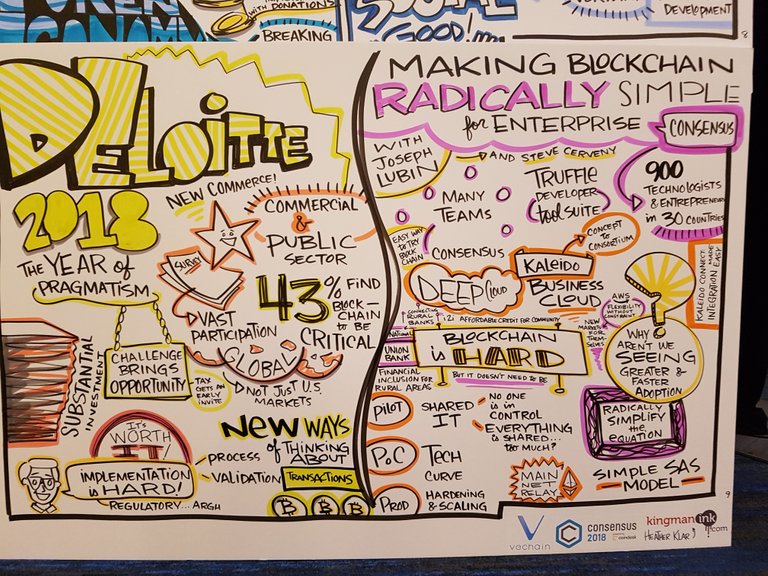 WITH DONATIONS
BREAKING
SOCIAL
GOOD!
DEVELOPMENT
8
DELOITTE
2018
THE YEAR OF
PRAGMATISM
NEW COMMERCE!
COMMERCIAL
&
PUBLIC
SECTOR
SURVEY
43% FIND
BLOCK-
CHAIN
TO BE
CRITICAL
VAST
PARTICIPATION
GLOBAL
NOT JUST U.S.
MARKETS
SUBSTANTIAL
INVESTMENT
CHALLENGE
BRINGS
OPPORTUNITY
TAX
GETS AN
EARLY
INVITE
IT'S
WORTH
IT
IMPLEMENTATION
is HARD!
REGULATORY... ARGH
NEW WAYS
OF THINKING
ABOUT
TRANSACTIONS
PROCESS
VALIDATION
MAKING BLOCKCHAIN
RADICALLY SIMPLE
for ENTERPRISE
CONSENSUS
WITH
JOSEPH
LUBIN
AND STEVE CERVENY
MANY
TEAMS
TRUFFLE
DEVELOPER
tool SUITE
900
TECHNOLOGISTS
& ENTREPRENEURS
in 30 COUNTRIES
EASY WAY
to TRY
BLOCK
CHAIN
CONSENSUS
CONCEPT
to
CONSORTIUM
DEEP Cloud
KALEIDO
BUSINESS
CLOUD
KALEIDO CONNECT MADE
INTEGRATION EASY
AWS
FLEXIBILITY
WITHOUT
CONSTRAINT
CONNECTING
RURAL
BANKS
i2i AFFORDABLE CREDIT FOR COMMUNITY
NEW
MARKET
FOR
THEM-
SELVES
NATIONAL
UNION
BANK
FINANCIAL
INCLUSION FOR
RURAL AREAS
BLOCKCHAIN
is HARD
BUT IT DOESN'T NEED TO BE
WHY
AREN'T WE
SEEING
GREATER &
FASTER
ADOPTION
PILOT
SHARED
IT
NO ONE
is IN
CONTROL
EVERYTHING
is SHARED...
too MUCH?
RADICALLY
SIMPLIFY
the
EQUATION
PoC
TECH
CURVE
MAIN
NET
RELAY
SIMPLE SAS
MODEL
PROD
HARDENING
& SCALING
9
vechain
consensus
2018
coindesk
kingmanink
.com
HEATHER KLAR